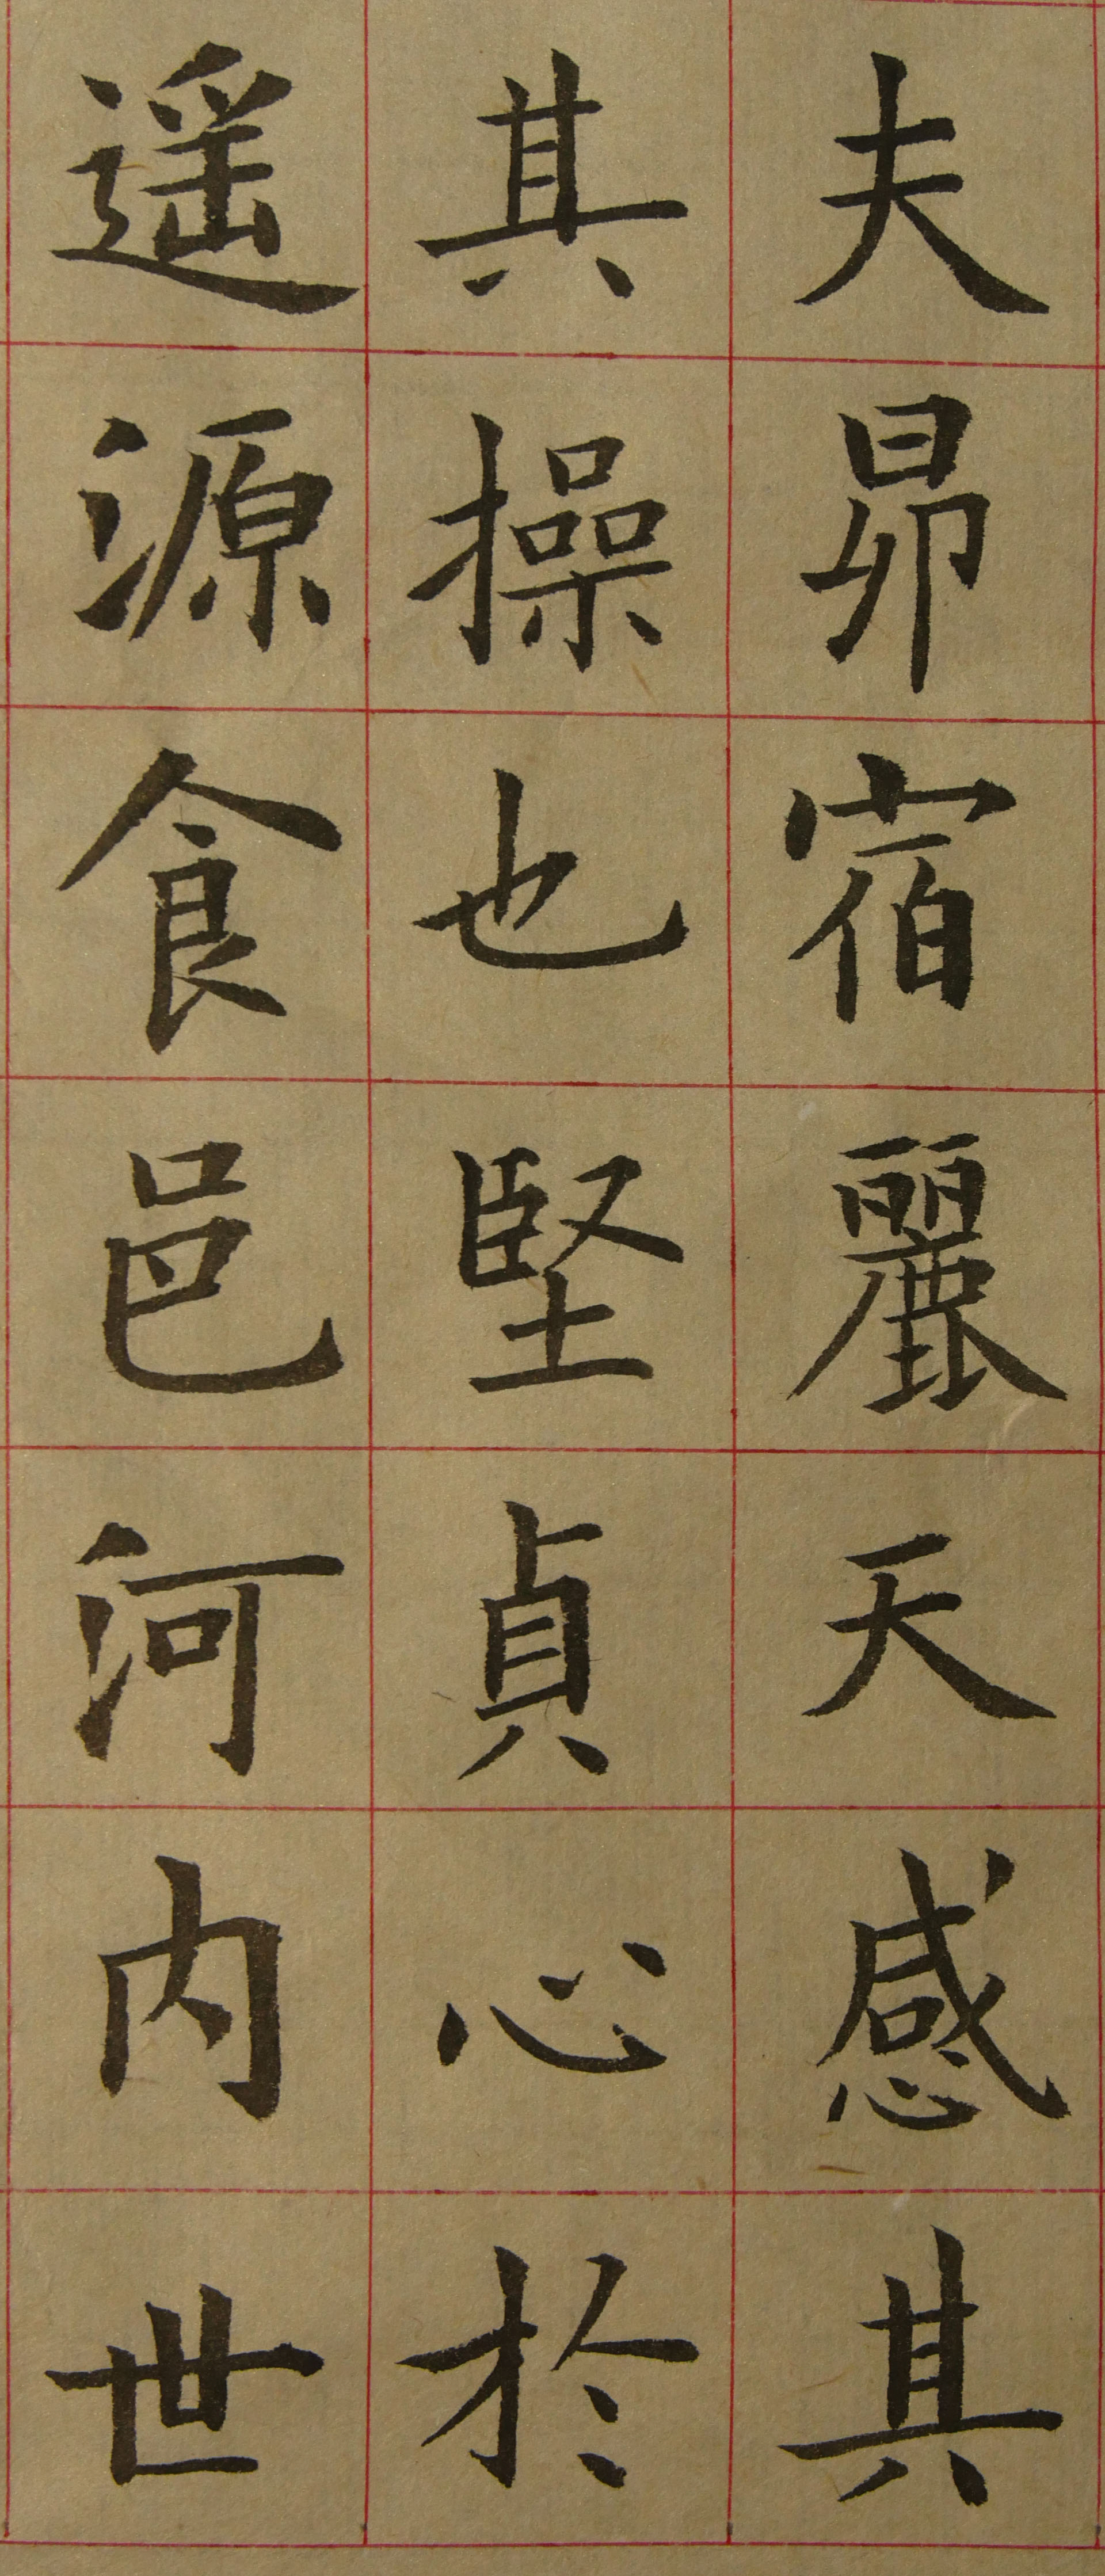 夫昴宿麗天感其
其操也堅貞心於
遥源食邑河内世